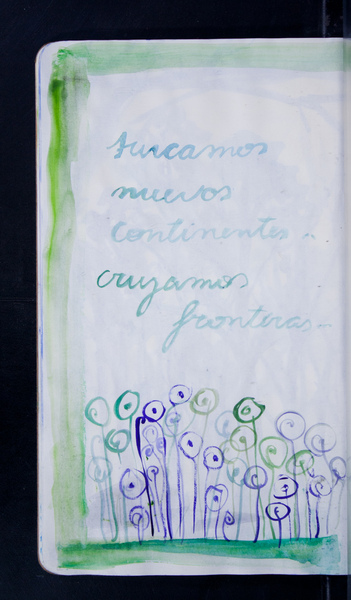 surcamos
nuevos
continentes..
cruzamos
fronteras...